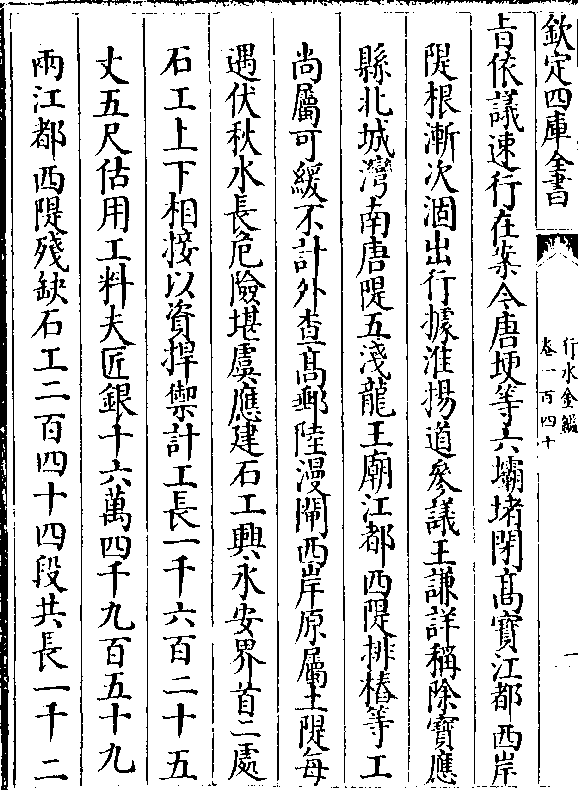 欽定四庫全書
行水金鑑
卷一百四十
一
旨依議速行在案今唐埂等六壩堵閉髙寶江都西岸
隄根漸次涸出行據淮揚道參議王謙詳稱除寶應
縣北城灣南唐隄五淺龍王廟江都西隄排樁等工
尚屬可緩不計外查髙郵陸漫閘西岸原屬土隄每
遇伏秋水長危險堪虞應建石工興永安界首二處
石工上下相接以資捍禦計工長一千六百二十五
丈五尺估用工料夫匠銀十六萬四千九百五十九
兩江都西隄殘缺石工二百四十四段共長一千二